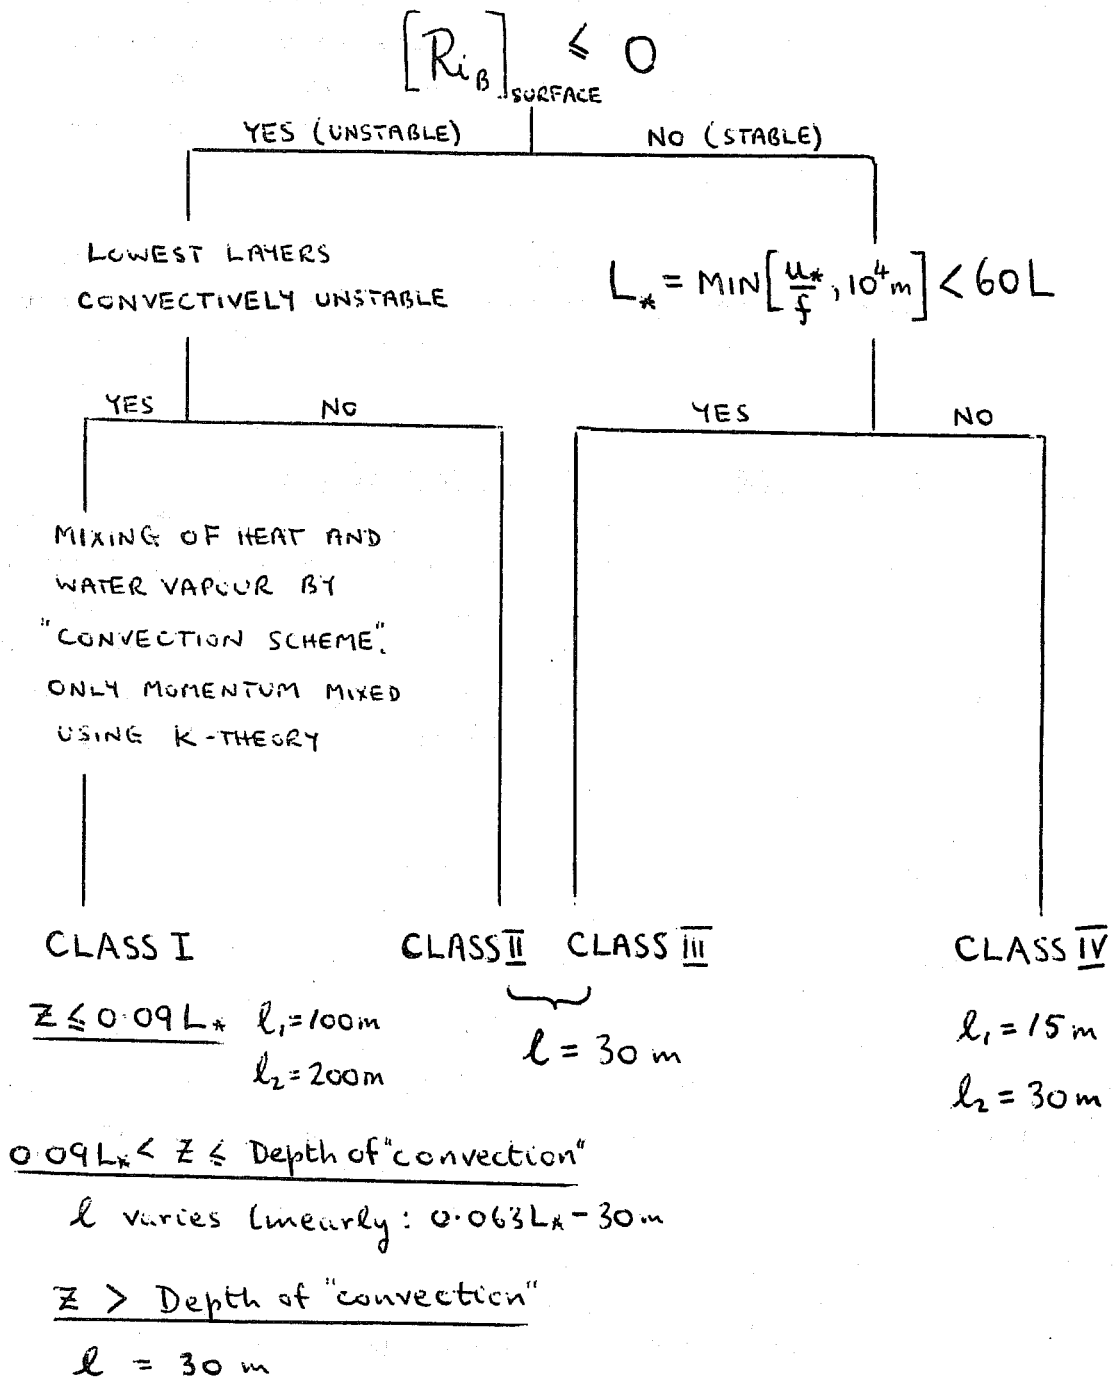 [Ri_B]_SURFACE ≤ 0
YES (UNSTABLE)
NO (STABLE)
LOWEST LAYERS
CONVECTIVELY UNSTABLE
L_* = MIN[u_*/f, 10⁴m] < 60L
YES
NO
YES
NO
MIXING OF HEAT AND
WATER VAPOUR BY
"CONVECTION SCHEME".
ONLY MOMENTUM MIXED
USING K-THEORY
CLASS I
CLASS II
CLASS III
CLASS IV
Z ≤ 0.09L_* l₁=100m
l₂=200m
l = 30 m
l₁ = 15 m
l₂ = 30 m
0.09L_* < Z ≤ Depth of "convection"
l varies linearly: 0.063L_* - 30m
Z > Depth of "convection"
l = 30 m